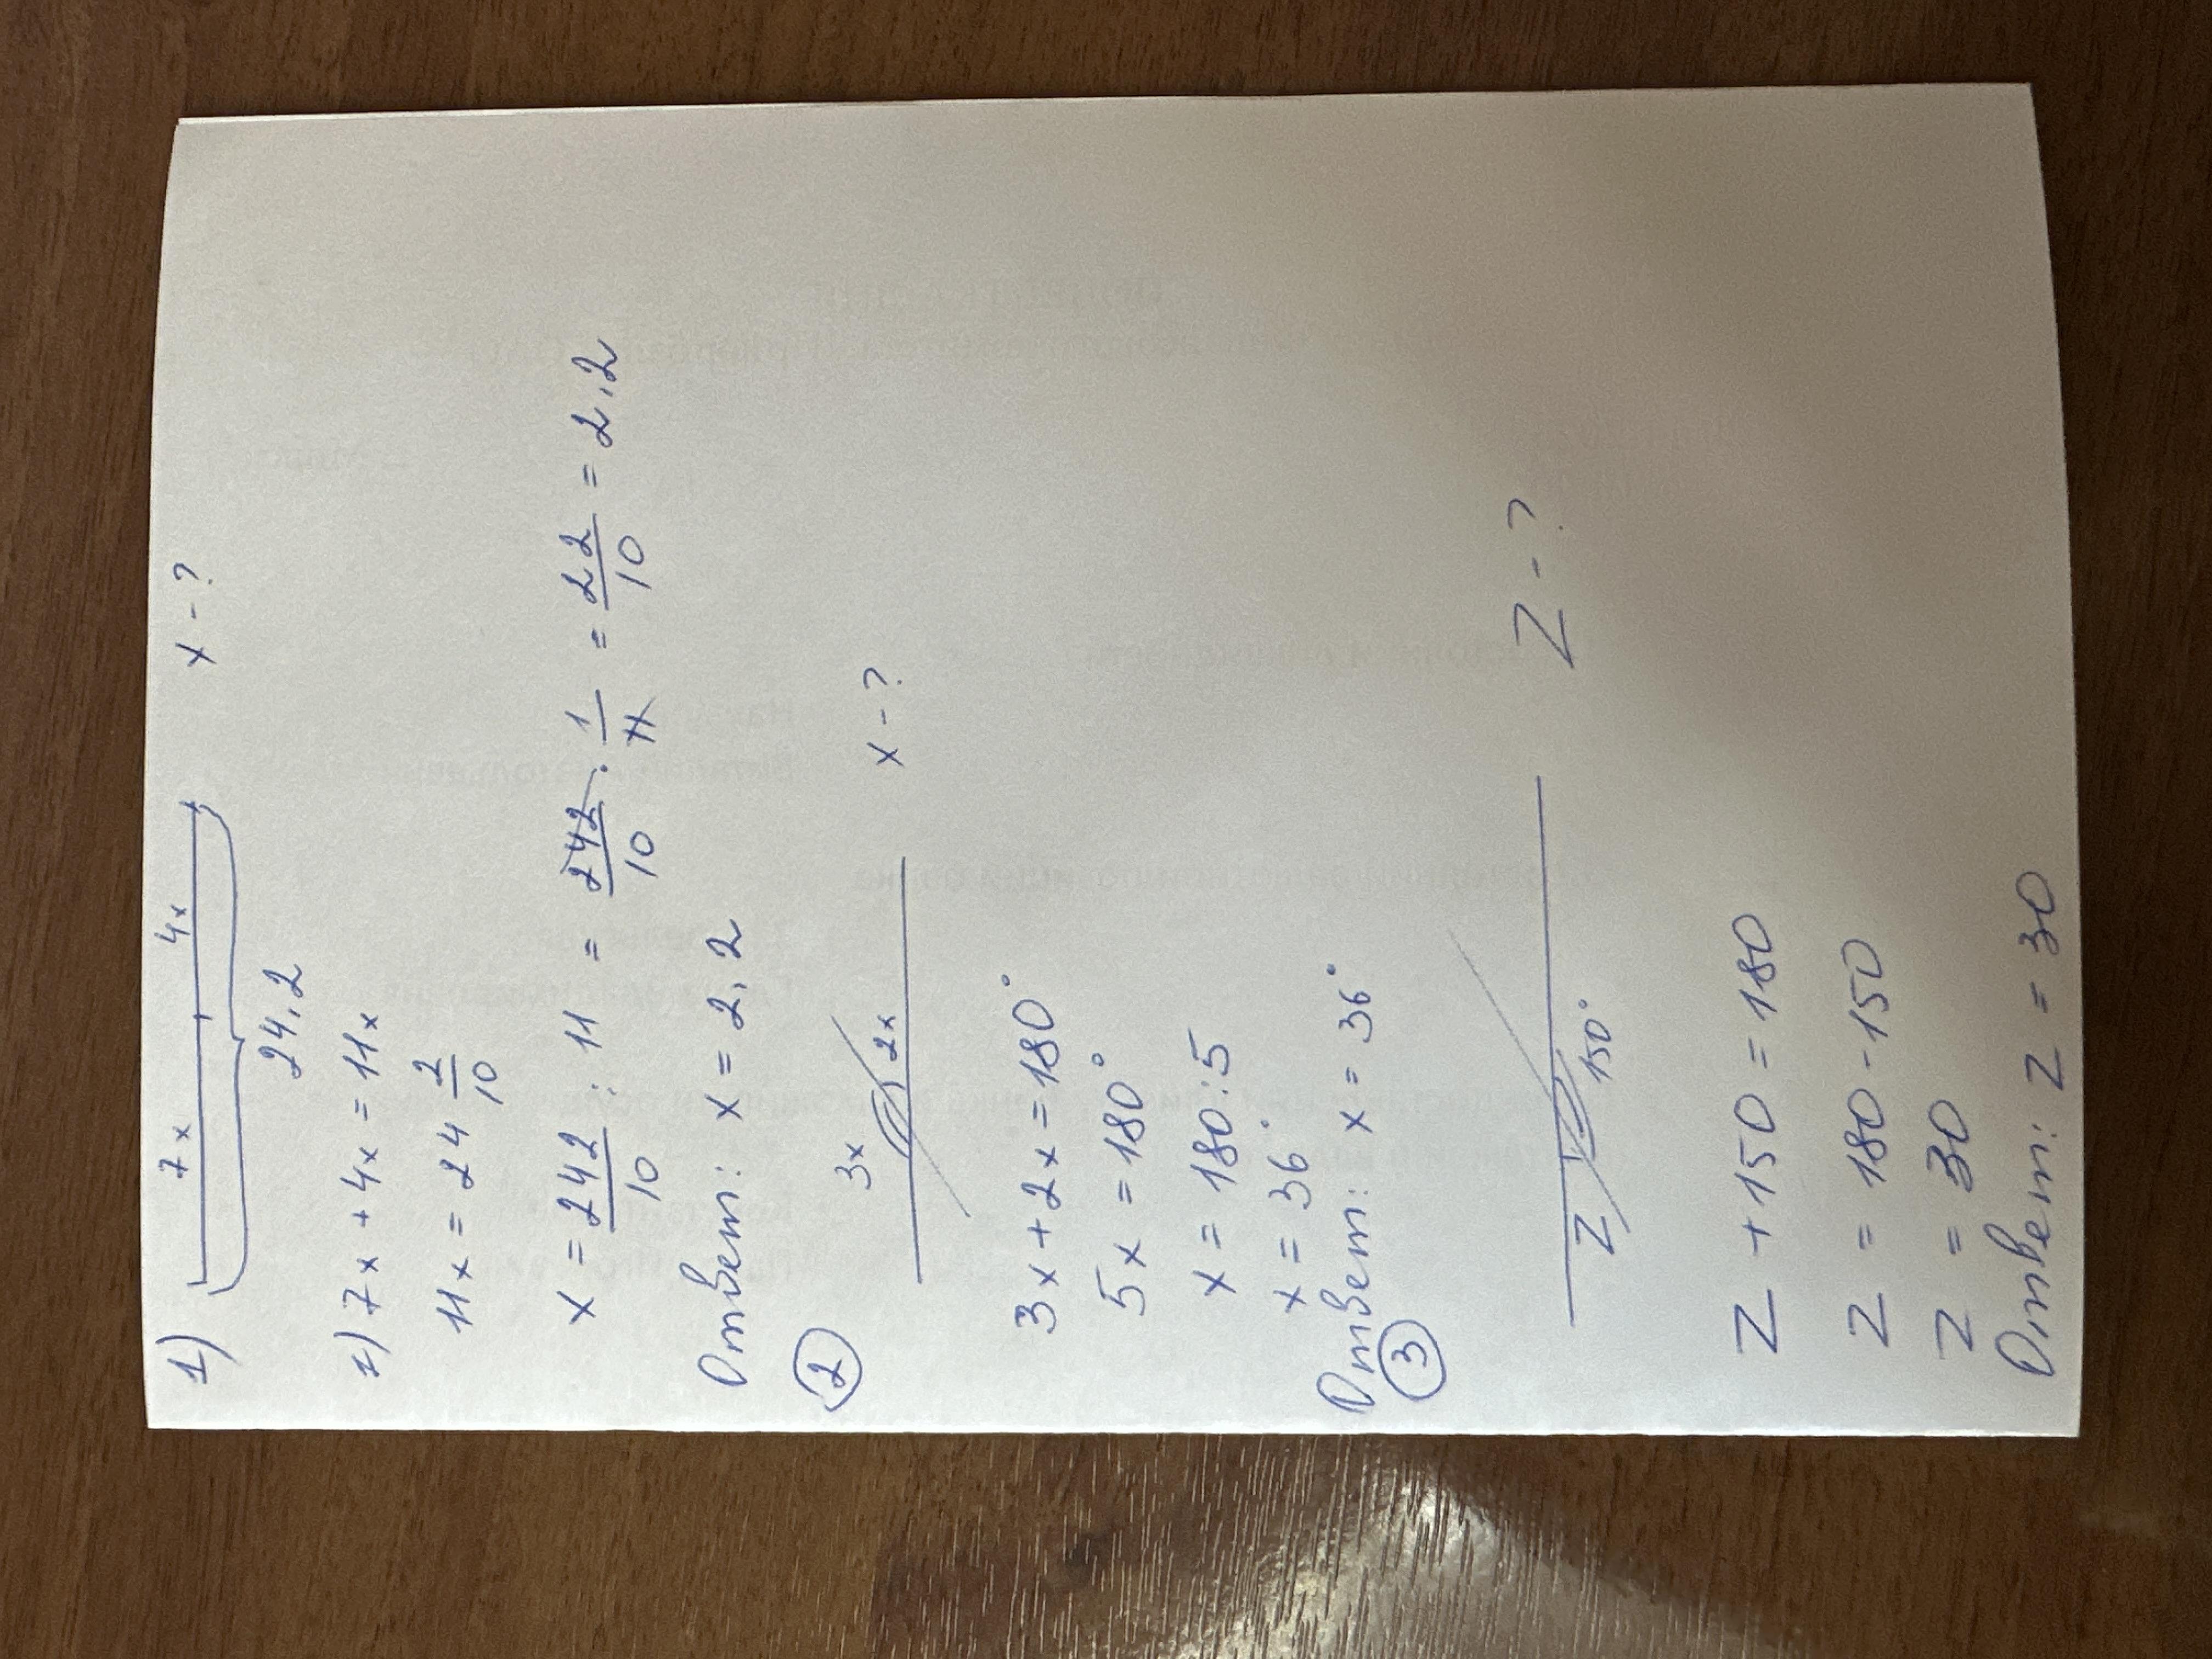 1) 7x 4x x - ?
24,2
1) 7x + 4x = 11x
11x = 24 2/10
x = 242/10 : 11 = 242/10 · 1/11 = 22/10 = 2,2
Ответ: x = 2,2
2 3x 2x x - ?
3x + 2x = 180°
5x = 180°
x = 180 : 5
x = 36°
Ответ: x = 36°
3
Z 150° Z - ?
Z + 150 = 180
Z = 180 - 150
Z = 30
Ответ: Z = 30